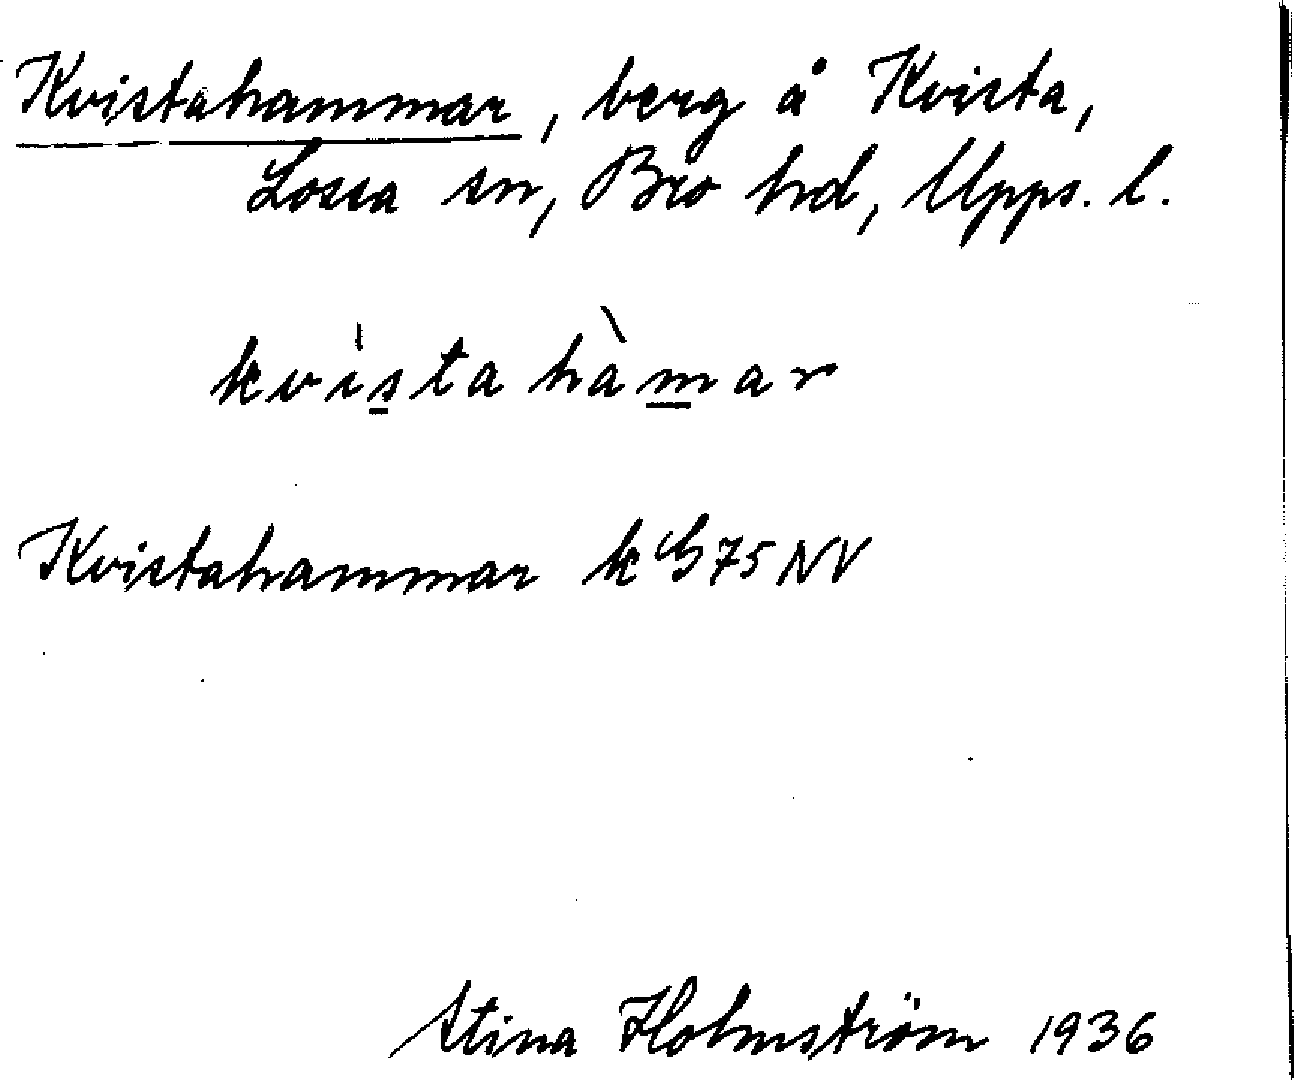 Kvistahammar, berg å Kvista,
Lossa sn, Bro hd, Upps. l.
kvistahàmar
Kvistahammar k G 75 NV
Stina Holmström 1936